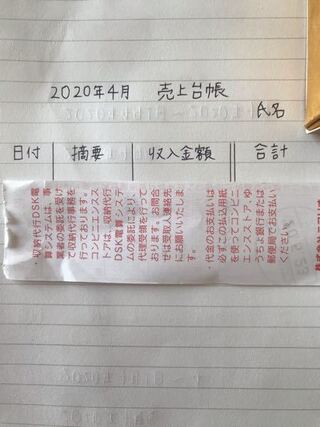 2020年4月 売上台帳
氏名
日付 摘要 収入金額 合計
・収納代行DSK電
算システムは、事
業者の委託を受け
て収納代行事務を
行っております。
コンビニエンスス
トアは、収納代行
DSK電算システ
ムの委託により、
代理受領を行って
おります。お問合
せは受取人連絡先
にお願いいたしま
す。
・代金のお支払いは
必ずこの払込用紙
を使ってコンビニ
エンスストア、ゆ
うちょ銀行または
郵便局でお支払い
ください。